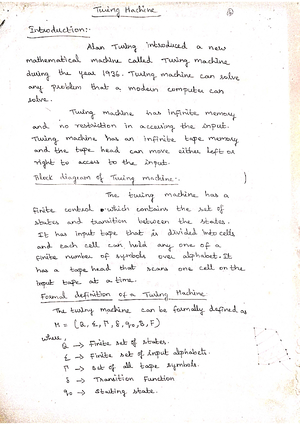 Turing Machine
Introduction:-
Alan Turing introduced a new
mathematical machine called Turing machine
during the year 1936. Turing machine can solve
any problem that a modern computer can
solve.
Turing machine has infinite memory
and no restriction in accessing the input.
Turing machine has an infinite tape memory
and the tape head can move either left or
right to access to the input.
Block diagram of Turing machine:-
The turing machine has a
finite control which contains the set of
states and transition between the states.
It has input tape that is divided into cells
and each cell can hold any one of a
finite number of symbols over alphabet. It
has a tape head that scans one cell on the
input tape at a time.
Formal definition of a Turing Machine
The turing machine can be formally defined as
M = (Q, Σ, Γ, δ, q0, B, F)
where,
Q → Finite set of states.
Σ → Finite set of input alphabets.
Γ → set of all tape symbols.
δ → Transition Function
q0 → Starting state.